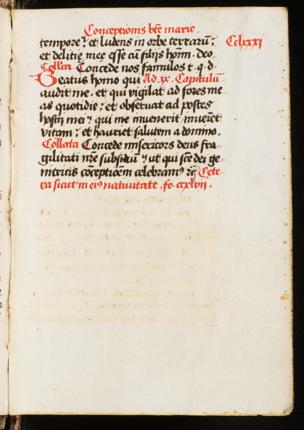 Conceptionis bte marie
CCLxxxi
tempore: et ludens in orbe terrarum:
et delitie mee esse cu filiis homi. deo
Collcta. Concede nos famulos t. q. d
Beatus homo qui Ad. ix. Capitulu
audit me. et qui vigilat ad fores me
as quotidie: et observat ad postes
hostii mei: qui me invenerit inveiet
vitam: et hauriet salutem a domino.
Collecta Concede misericors deus fra
gilitati nre subsidiu: ut qui sce dei ge
nitricis coceptioem celebramus Cete
ra sicut in eius nativitate. fo. cxlvii.